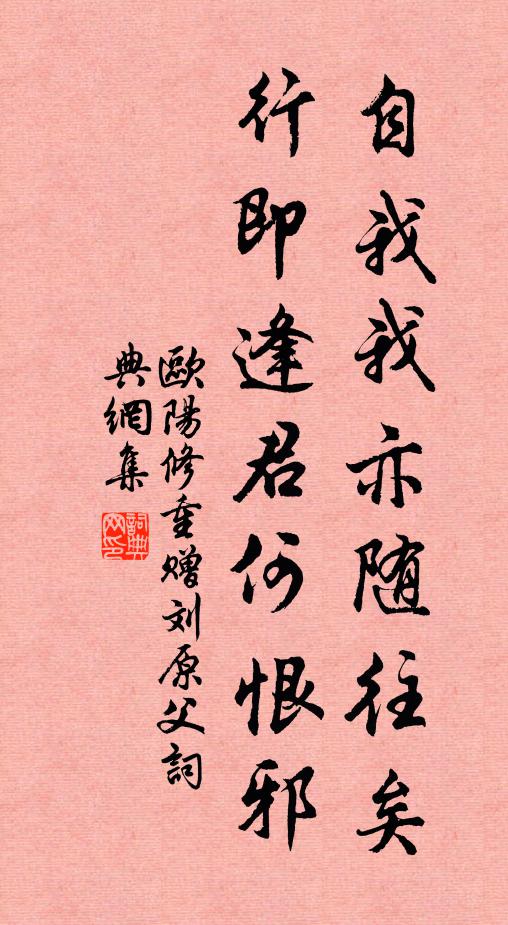 自我我亦随往矣
行即逢君何恨邪
歐陽修重赠刘原父詞
典網集
詞典
网印